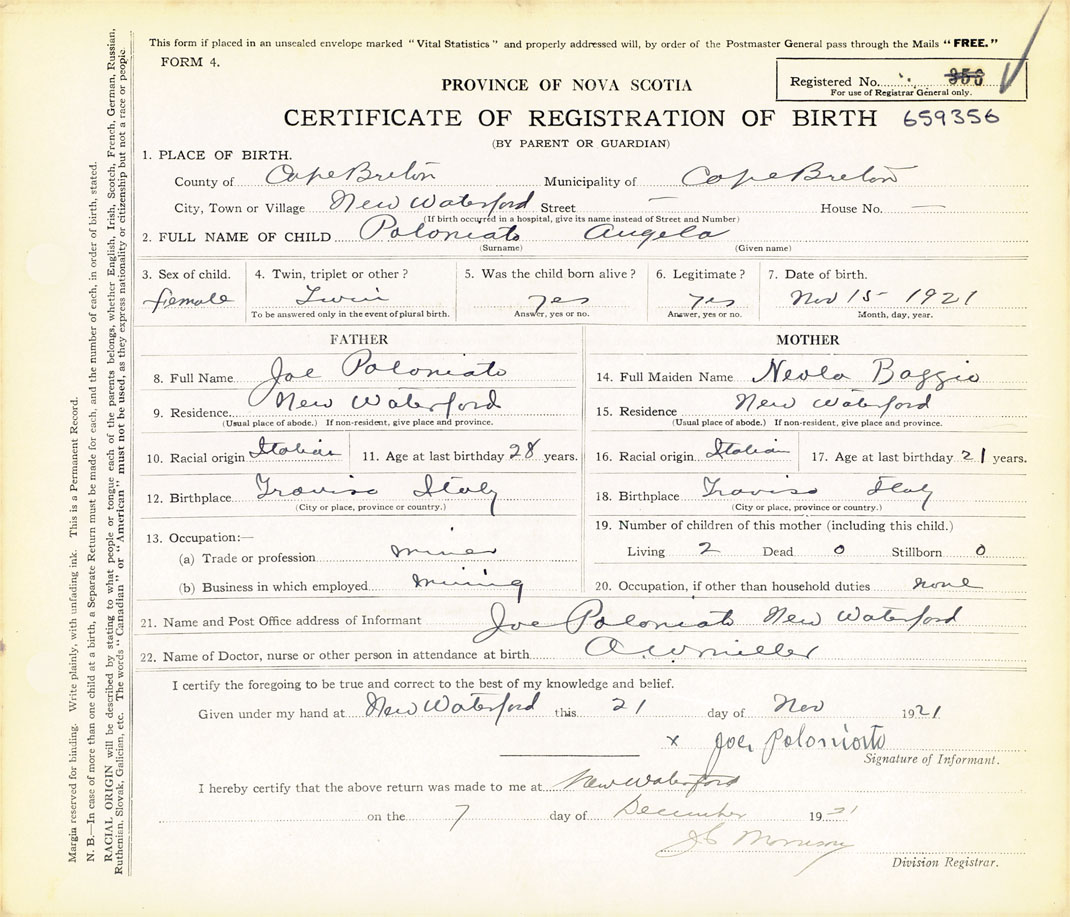 This form if placed in an unsealed envelope marked "Vital Statistics" and properly addressed will, by order of the Postmaster General pass through the Mails "FREE."
FORM 4.
Registered No. 353
For use of Registrar General only.
PROVINCE OF NOVA SCOTIA
CERTIFICATE OF REGISTRATION OF BIRTH 659356
(BY PARENT OR GUARDIAN)
1. PLACE OF BIRTH.
County of Cape Breton Municipality of Cape Breton
City, Town or Village New Waterford Street — House No. —
(If birth occurred in a hospital, give its name instead of Street and Number)
2. FULL NAME OF CHILD Poloniato Angela
(Surname) (Given name)
3. Sex of child. 4. Twin, triplet or other? 5. Was the child born alive? 6. Legitimate? 7. Date of birth.
female Twin yes yes Nov 15 - 1921
To be answered only in the event of plural birth. Answer, yes or no. Answer, yes or no. Month, day, year.
FATHER MOTHER
8. Full Name Joe Poloniato 14. Full Maiden Name Neola Baggio
9. Residence New Waterford 15. Residence New Waterford
(Usual place of abode.) If non-resident, give place and province. (Usual place of abode.) If non-resident, give place and province.
10. Racial origin Italian 11. Age at last birthday 28 years. 16. Racial origin Italian 17. Age at last birthday 21 years.
12. Birthplace Traviso Italy 18. Birthplace Traviso Italy
(City or place, province or country.) (City or place, province or country.)
13. Occupation:— 19. Number of children of this mother (including this child.)
(a) Trade or profession miner Living 2 Dead 0 Stillborn 0
(b) Business in which employed mining 20. Occupation, if other than household duties none
21. Name and Post Office address of Informant Joe Poloniato New Waterford
22. Name of Doctor, nurse or other person in attendance at birth A. W. Miller
I certify the foregoing to be true and correct to the best of my knowledge and belief.
Given under my hand at New Waterford this 21 day of Nov 1921
x Joe Poloniato
Signature of Informant.
I hereby certify that the above return was made to me at New Waterford
on the 7 day of December 1921
Morrison
Division Registrar.
Margin reserved for binding. Write plainly, with unfading ink. This is a Permanent Record.
N. B.—In case of more than one child at a birth, a Separate Return must be made for each, and the number of each, in order of birth, stated.
RACIAL ORIGIN will be described by stating to what people or tongue each of the parents belongs, whether English, Irish, Scotch, French, German, Russian,
Ruthenian, Slovak, Galician, etc. The words "Canadian" or "American" must not be used, as they express nationality or citizenship but not a race or people.